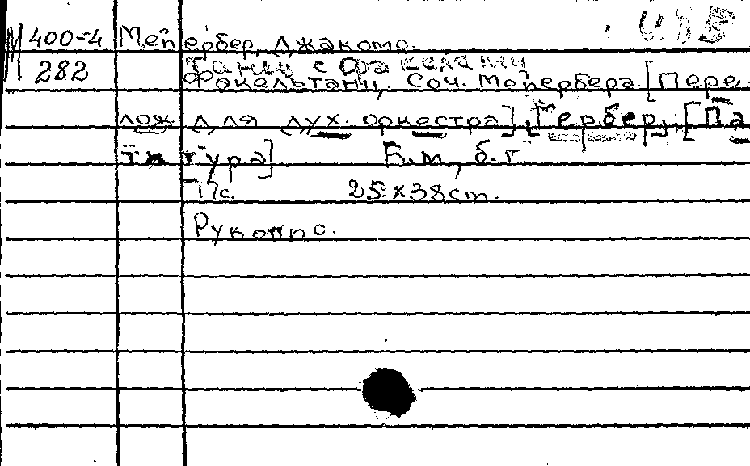 М 400-4 Мейербер, Джакомо.
282 Танец с факелами
Факельтанц. Соч. Мейербера. [Пере-
лож. для дух. оркестра], Гербер, [Па
ти тура] Б.м., б.г.
17с. 25×38cm.
Рукопис.